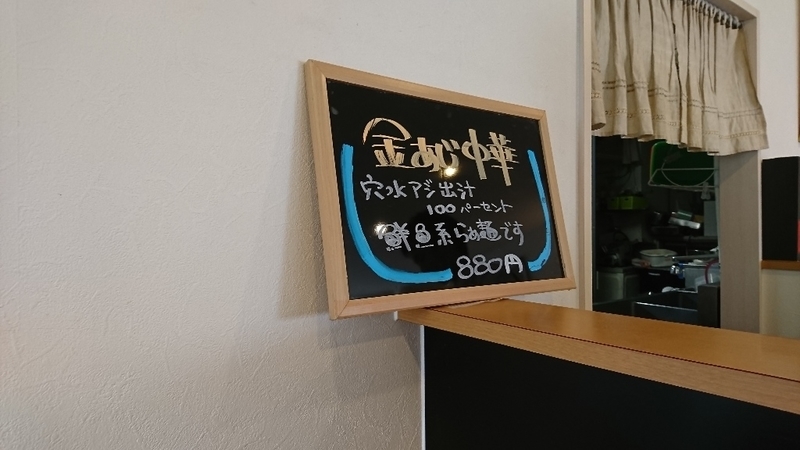 金あじ中華
穴水アジ出汁
100パーセント
鮮魚系らぁ麺です
880円